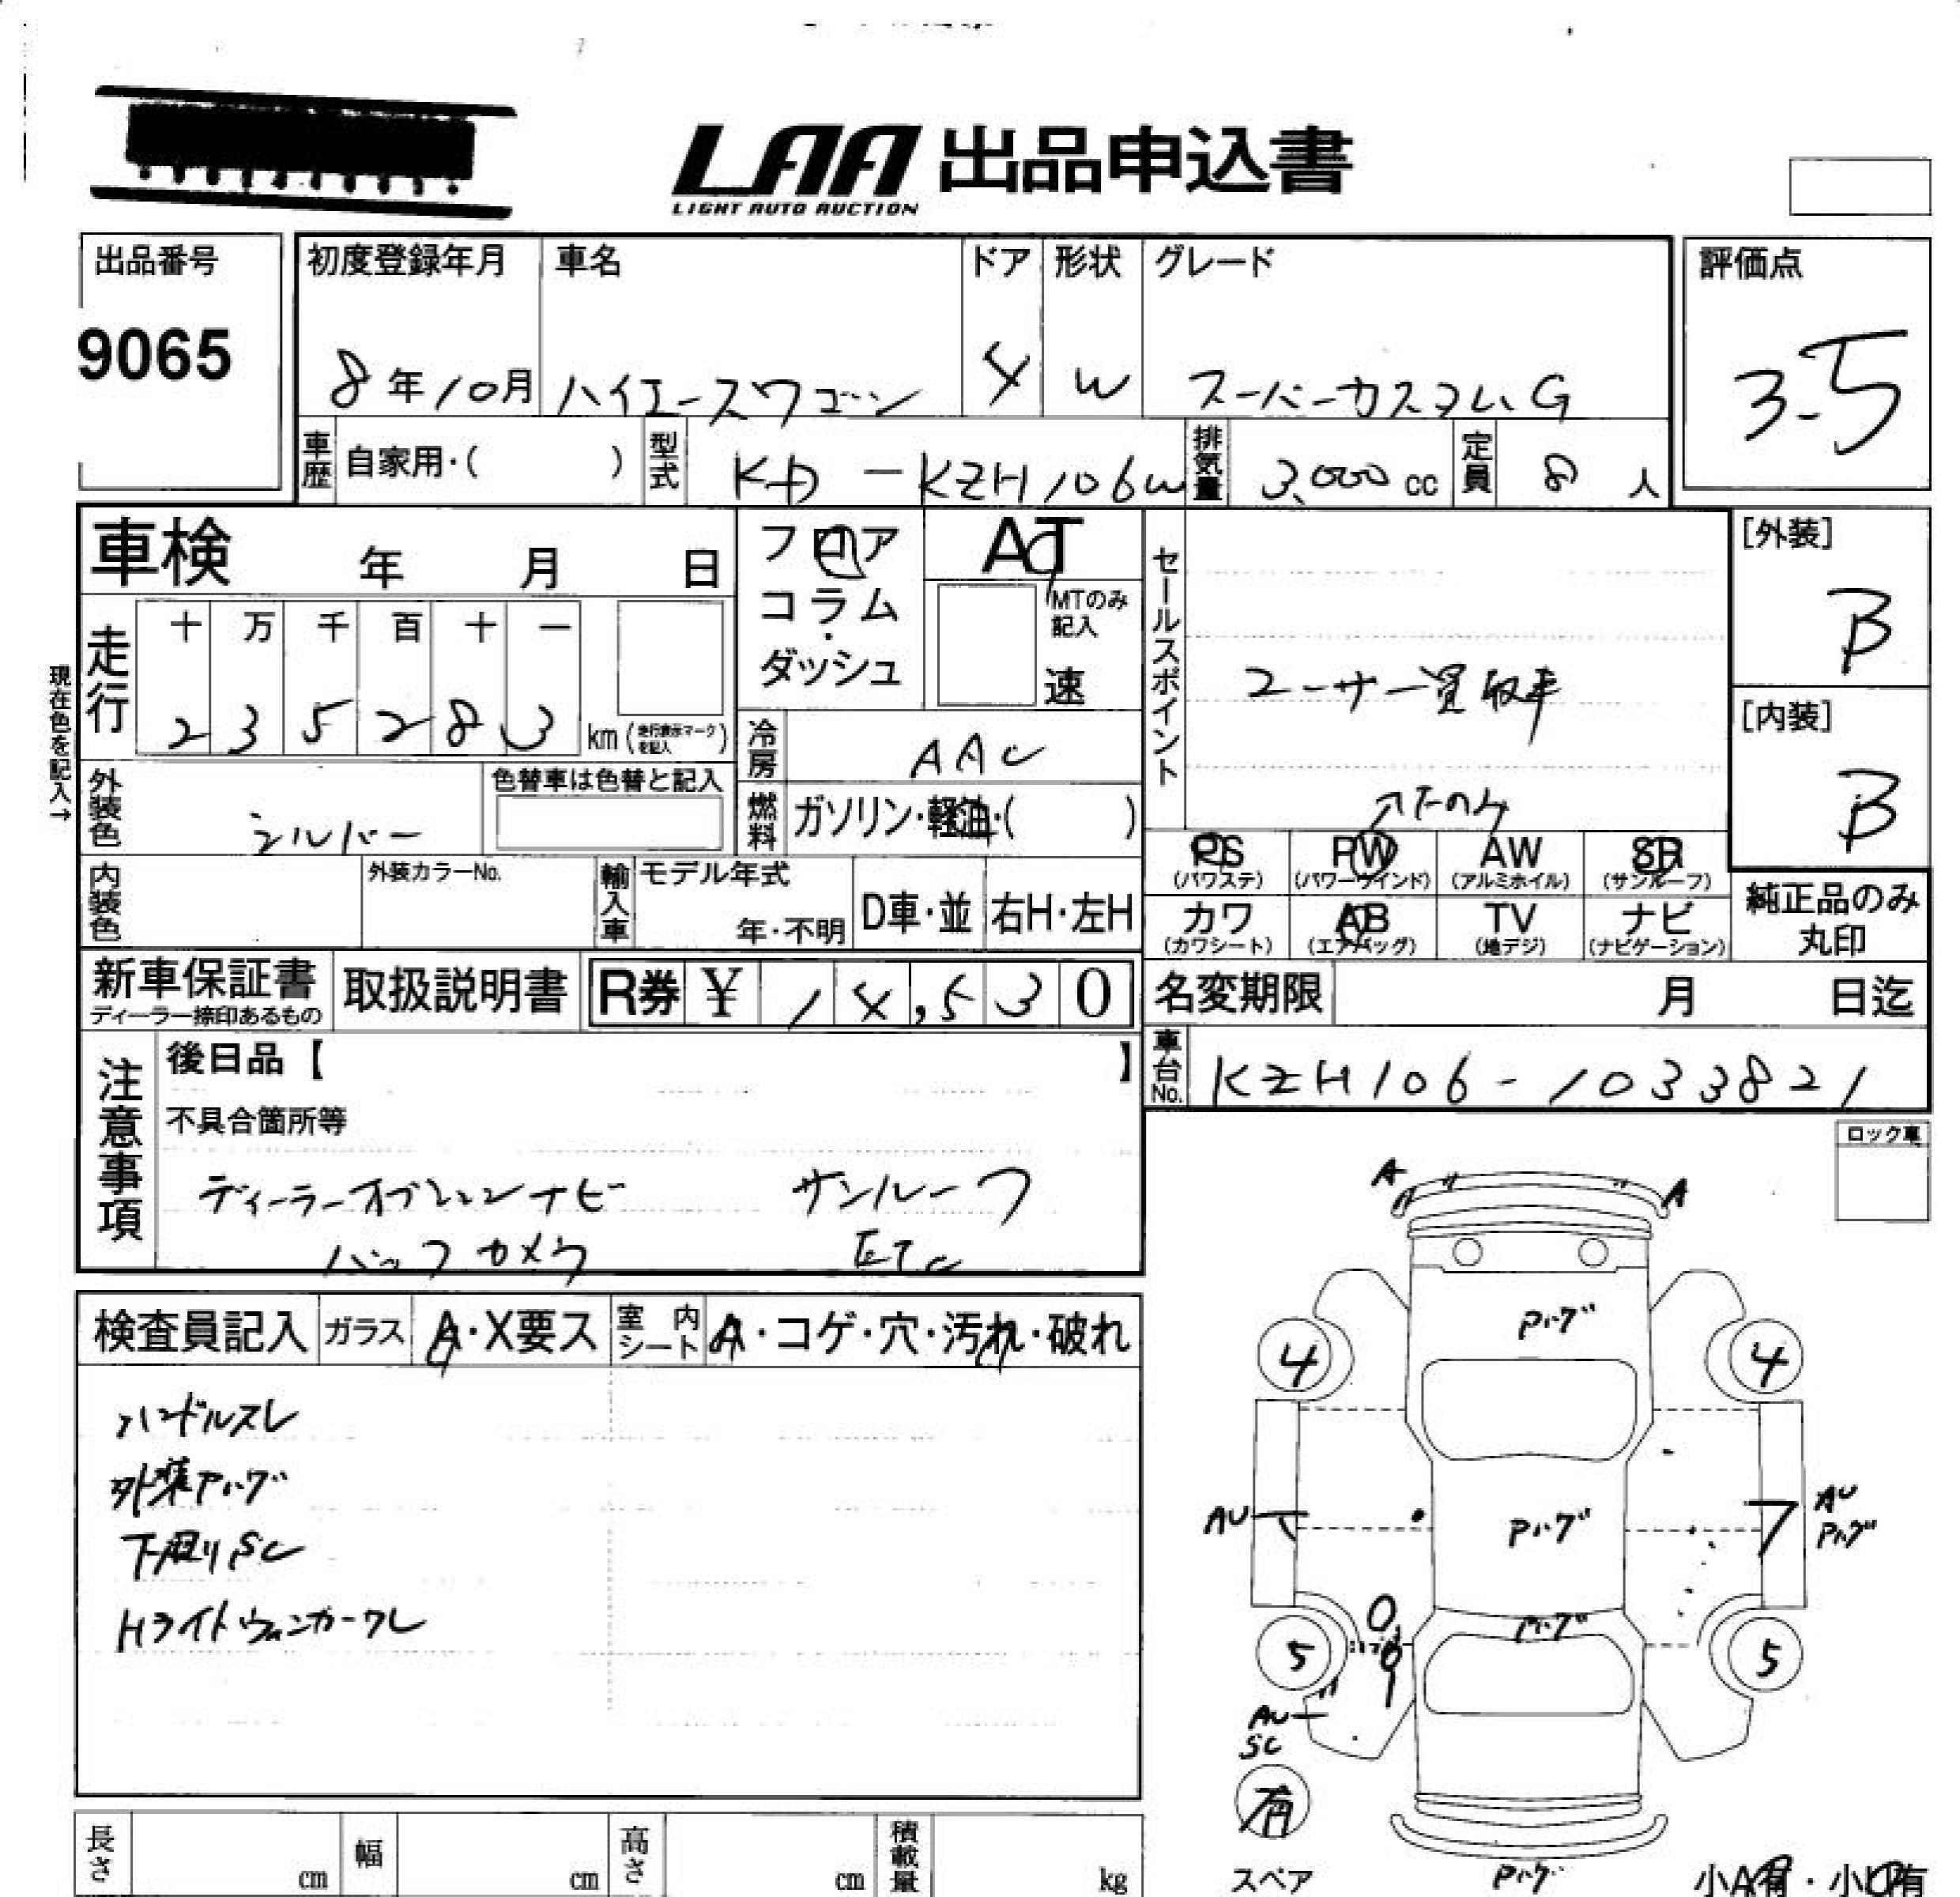 LAA 出品申込書
LIGHT AUTO AUCTION
出品番号
9065
初度登録年月
8年10月
車名
ハイエースワゴン
ドア
4
形状
W
グレード
スーパーカスタムG
評価点
3.5
車歴
自家用・( )
型式
KD-KZH106W
排気量
3,000 cc
定員
8 人
車検 年 月 日
フロア
コラム
・
ダッシュ
AT
MTのみ記入
速
現在色を記入→
走行
十 万 千 百 十 一
2 3 5 2 8 3 km (走行表示マークを記入)
冷房
AAC
燃料
ガソリン・軽油・( )
外装色
シルバー
色替車は色替と記入
内装色
外装カラーNo.
輸入車
モデル年式
年・不明
D車・並
右H・左H
セールスポイント
ユーザー買取車
[外装]
B
[内装]
B
PS
(パワステ)
PW
(パワーウインド)
AW
(アルミホイル)
SR
(サンルーフ)
カワ
(カワシート)
AB
(エアバッグ)
TV
(地デジ)
ナビ
(ナビゲーション)
純正品のみ
丸印
新車保証書
ディーラー捺印あるもの
取扱説明書
R券 ¥ 14,530
名変期限 月 日迄
車台No.
KZH106-1033821
注意事項
後日品【 】
不具合箇所等
ディーラーオプションナビ サンルーフ
バックカメラ ETC
ロック車
検査員記入
ガラス
A・X要ス
室内シート
A・コゲ・穴・汚れ・破れ
ハンドルスレ
外装Pハゲ
下廻りSC
Hライトウィンカークレ
A
A
Pハゲ
4
4
AU
Pハゲ
AU
Pハゲ
Pハゲ
5
5
AU
SC
有
スペア
Pハゲ
小A有・小U有
長さ cm
幅 cm
高さ cm
積載量 kg